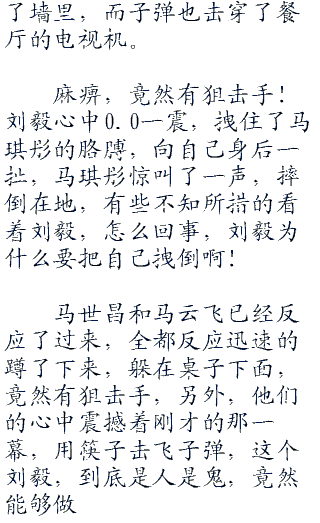 了墙里，而子弹也击穿了餐
厅的电视机。
麻痹，竟然有狙击手！
刘毅心中0.0一震，拽住了马
琪彤的胳膊，向自己身后一
扯，马琪彤惊叫了一声，摔
倒在地，有些不知所措的看
着刘毅，怎么回事，刘毅为
什么要把自己拽倒啊！
马世昌和马云飞已经反
应了过来，全都反应迅速的
蹲了下来，躲在桌子下面，
竟然有狙击手，另外，他们
的心中震撼着刚才的那一
幕，用筷子击飞子弹，这个
刘毅，到底是人是鬼，竟然
能够做